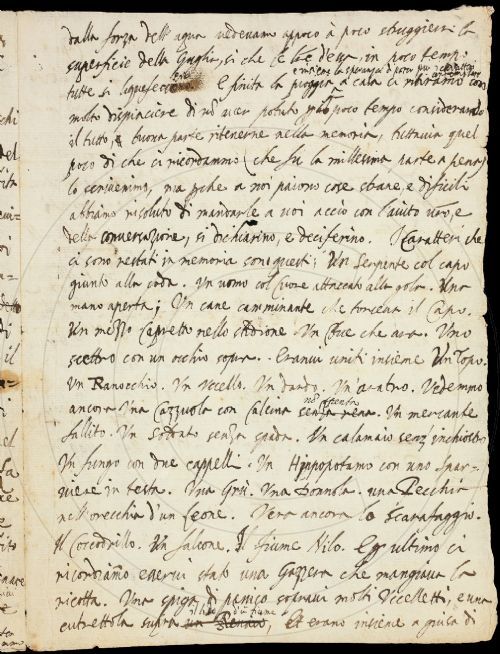 dalla forza dell'aqua vedevamo a poco à poco struggiersi la
superficie della Guglia, si che le lre d'essa, in poco tempo
tutte si liquefecero. E finita la pioggia
e insieme la speranza di poter più
à casa ci ritirammo con
molto dispiacere di nō aver potuto poco tempo considerando
il tutto, e buona parte ritenerne nella memoria, tuttavia quel
poco di che ci ricordammo (che fu la millesima parte a pena)
lo scrivemmo, ma pche a noi paiono cose strane, e difficili
abbiamo risoluto di mandarle a voi acciò con l'aiuto vrō, e
della conversazione, si dichiarino, e deciferino. I Caratteri che
ci sono restati in memoria son questi; Un Serpente col capo
giunto alla coda. Un uomo col Cuore attaccato alla gola. Una
mano aperta; Un cane camminante che torceva il Capo.
Un mezzo Capretto nello Stidione. Un Bue che ara. Uno
scettro con un occhio sopra. Eranvi uniti insieme Un Topo.
Un Ranocchio. Un Uccello. Un dardo. Un aratro. Vedemmo
ancora Una Cazzuola con Calcina senza rena. Un mercante
fallito. Un Soldato senza spada. Un calamaio senz inchiostro
Un fungo con due cappelli. Un Hippopotamo con uno Spar-
viere in testa. Una Grù. Una Donnola. una Pecchia
nell'orecchia d'un Leone. Vera ancora lo Scarafaggio.
Il Cocodrillo. Un falcone. Il fiume Nilo. Et ultimo ci
ricordiamo esservi stato una Gazzera che mangiava la
ricotta. Una spiga di panico sopravi molti Uccelletti, e una
cutrettola supra
il lido d'un fiume
Et erano insieme a guisa di